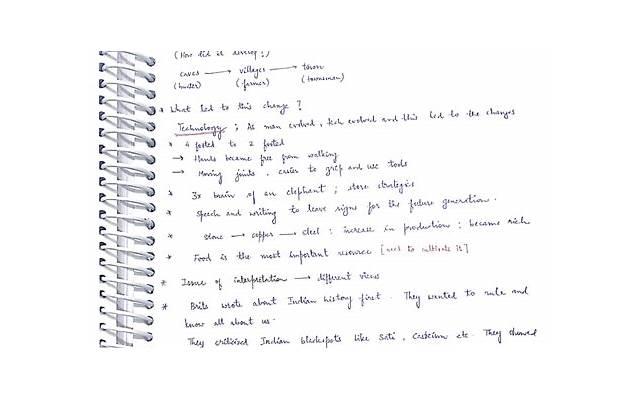 (How did it develop?)
caves → villages → town
(hunter) (farmer) (townsman)
* What led to this change?
Technology ; As man evolved, tech evolved and this led to the changes
* 4 footed to 2 footed
→ Hands became free from walking
→ Moving joints, easier to grip and use tools
* 3x brain of an elephant ; store strategies
* Speech and writing to leave signs for the future generation.
* stone → copper → steel : increase in production : became rich
* Food is the most important resource [need to cultivate it]
* Issue of interpretation → different views
* Brits wrote about Indian history first. They wanted to rule and
know all about us.
They critised Indian blackspots like Sati, Casteism etc. They showed